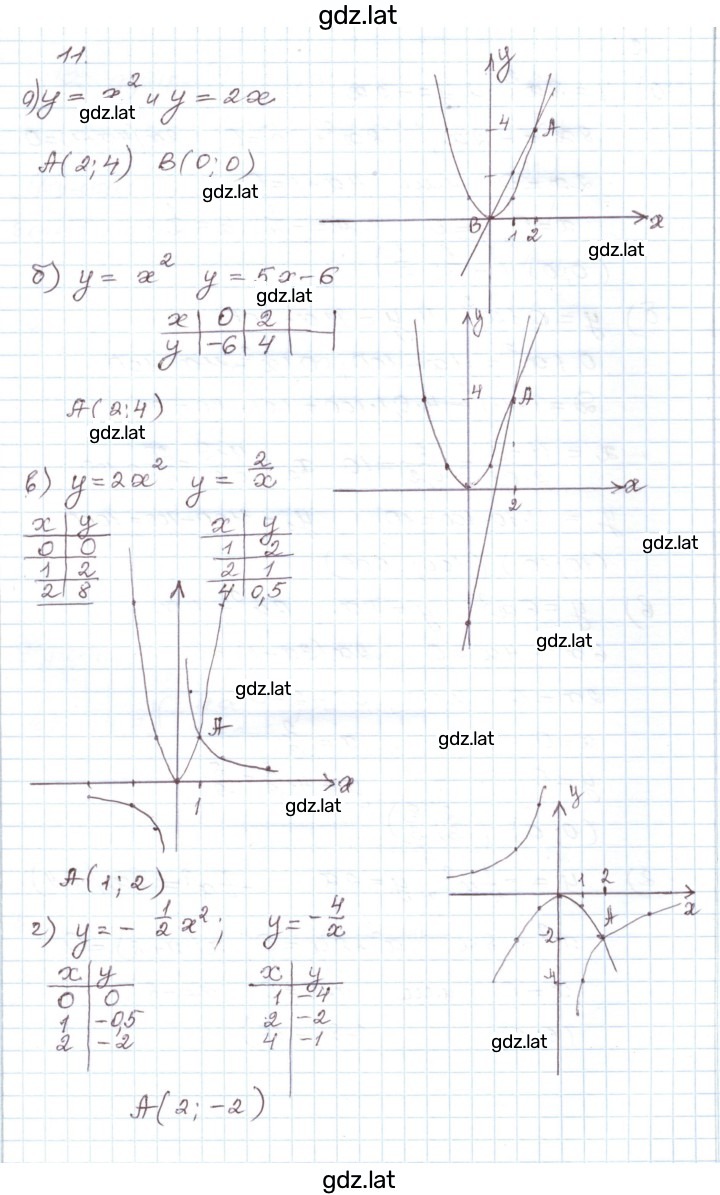 gdz.lat
11.
а) y = x² и y = 2x
gdz.lat
A(2;4) B(0;0)
gdz.lat
y
4
A
B
1 2
x
gdz.lat
б) y = x² y = 5x-6
gdz.lat
x | 0 | 2 |
y | -6 | 4 |
A(2;4)
gdz.lat
y
4
A
2
x
gdz.lat
gdz.lat
в) y = 2x² y = 2/x
x | y x | y
0 | 0 1 | 2
1 | 2 2 | 1
2 | 8 4 | 0,5
gdz.lat
gdz.lat
A
1
x
gdz.lat
A(1;2)
г) y = - 1/2 x²; y = - 4/x
x | y x | y
0 | 0 1 | -4
1 | -0,5 2 | -2
2 | -2 4 | -1
y
1 2
x
A
-2
-4
gdz.lat
A(2;-2)
gdz.lat